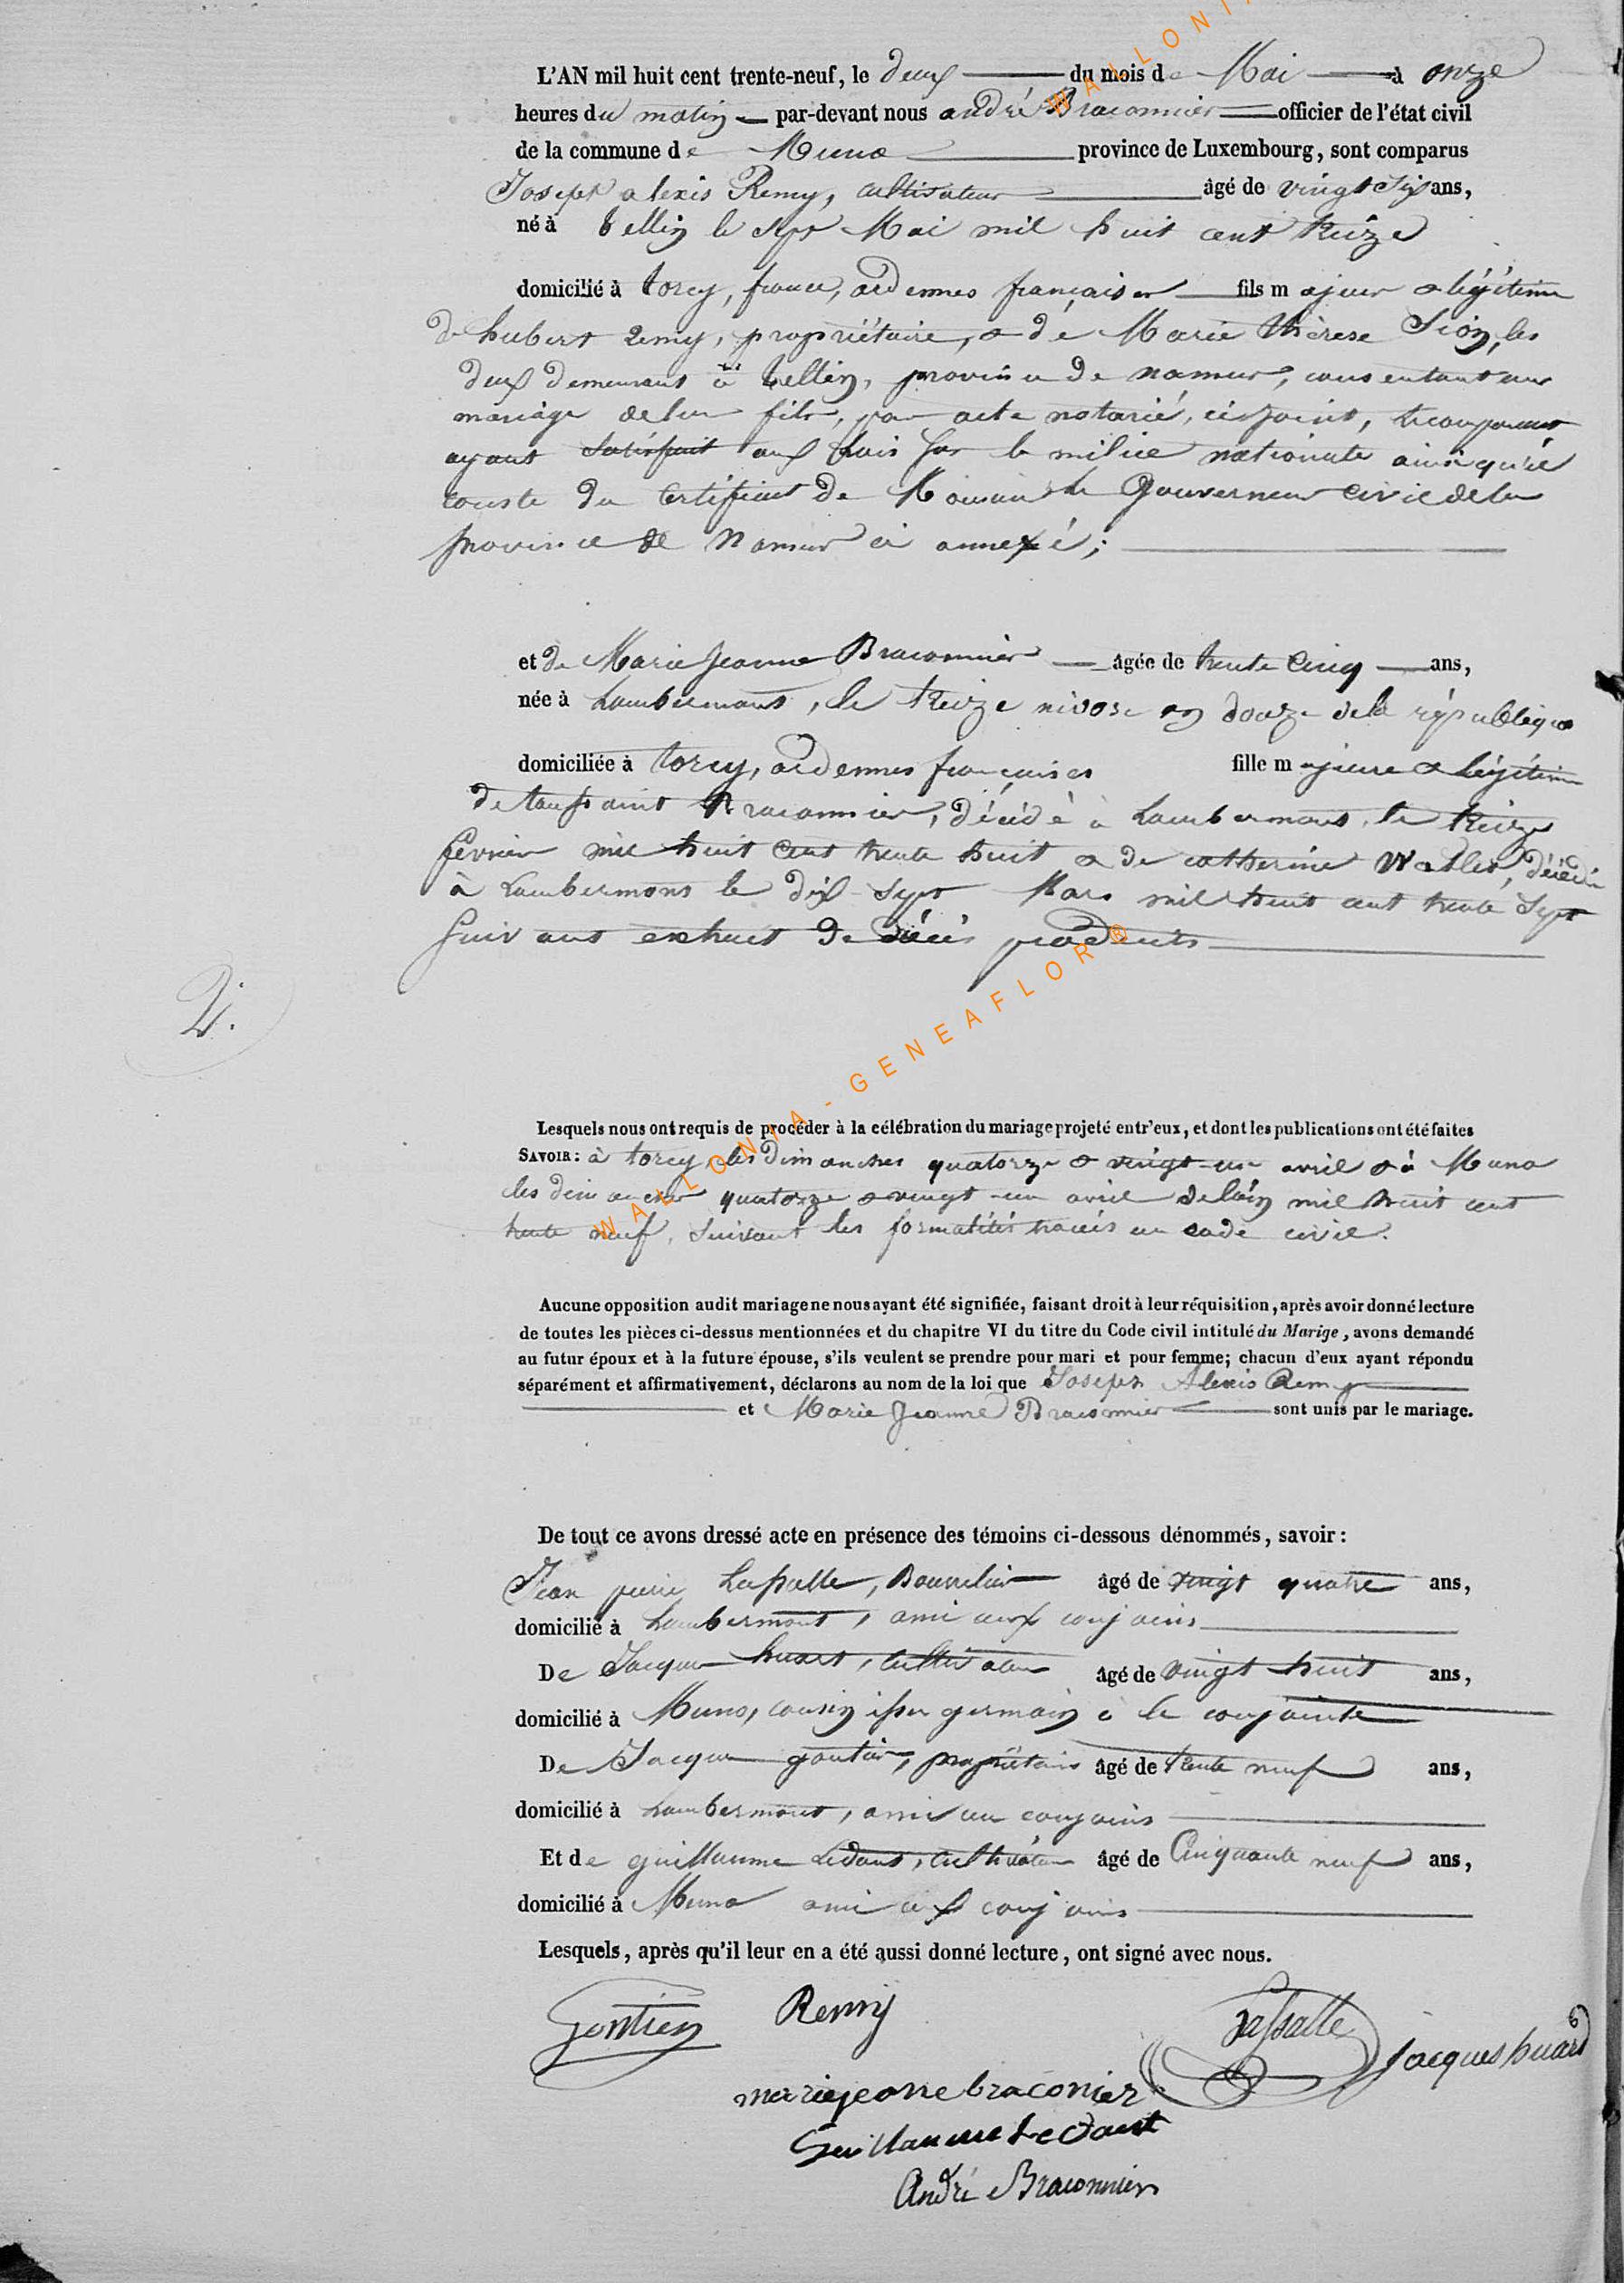 L'AN mil huit cent trente-neuf, le deux du mois de Mai à onze
heures du matin par-devant nous andré Braconnier officier de l'état civil
de la commune de Muno province de Luxembourg, sont comparus
Joseph alexis Remy, cultivateur âgé de vingt six ans,
né à tellin le sept Mai mil huit cent treize
domicilié à torcy, france, ardennes françaises fils majeur & légitime
de hubert remy, propriétaire, & de Marie thérese Sion, les
deux demeurant à tellin, province de namur, consentant au
mariage de leur fils, par acte notarié, ci joint, le comparant
ayant satisfait aux lois sur la milice nationale ainsi qu'il
conste du certificat de Monsieur le Gouverneur civil de la
province de Namur ci annexé;
et de Marie Jeanne Braconnier âgée de trente cinq ans,
née à Lambermont, le treize nivose an douze de la république
domiciliée à torcy, ardennes françaises fille majeure & légitime
de toussaint Braconnier, décédé à Lambermont le treize
février mil huit cent trente huit & de catherine Watlet, décédée
à Lambermont le dix-sept Mars mil huit cent trente sept
suivant extrait de décès produits
2.
Lesquels nous ont requis de procéder à la célébration du mariage projeté entr'eux, et dont les publications ont été faites
SAVOIR: à torcy les dimanches quatorze & vingt-un avril & à Muno
les dimanches quatorze & vingt-un avril de l'an mil huit cent
trente neuf, suivant les formalités tracées au code civil.
Aucune opposition audit mariage ne nous ayant été signifiée, faisant droit à leur réquisition, après avoir donné lecture
de toutes les pièces ci-dessus mentionnées et du chapitre VI du titre du Code civil intitulé du Marige, avons demandé
au futur époux et à la future épouse, s'ils veulent se prendre pour mari et pour femme; chacun d'eux ayant répondu
séparément et affirmativement, déclarons au nom de la loi que Joseph Alexis Remy
et Marie Jeanne Braconnier sont unis par le mariage.
De tout ce avons dressé acte en présence des témoins ci-dessous dénommés, savoir:
Jean pierre Lassalle, Bourrelier âgé de vingt quatre ans,
domicilié à Lambermont, ami aux conjoins
De Jacque huart, cultivateur âgé de vingt huit ans,
domicilié à Muno, cousin issu germain à la conjointe
De Jacque gontier, propriétaire âgé de trente neuf ans,
domicilié à Lambermont, ami au conjoins
Et de guillaume Ledant, cultivateur âgé de Cinquante neuf ans,
domicilié à Muno ami aux conjoins
Lesquels, après qu'il leur en a été aussi donné lecture, ont signé avec nous.
Gontier Remy Lassalle Jacques huard
marie jeanne braconier
Guillaume Ledant
André Braconnier
WALLONIA - GENEAFLOR®